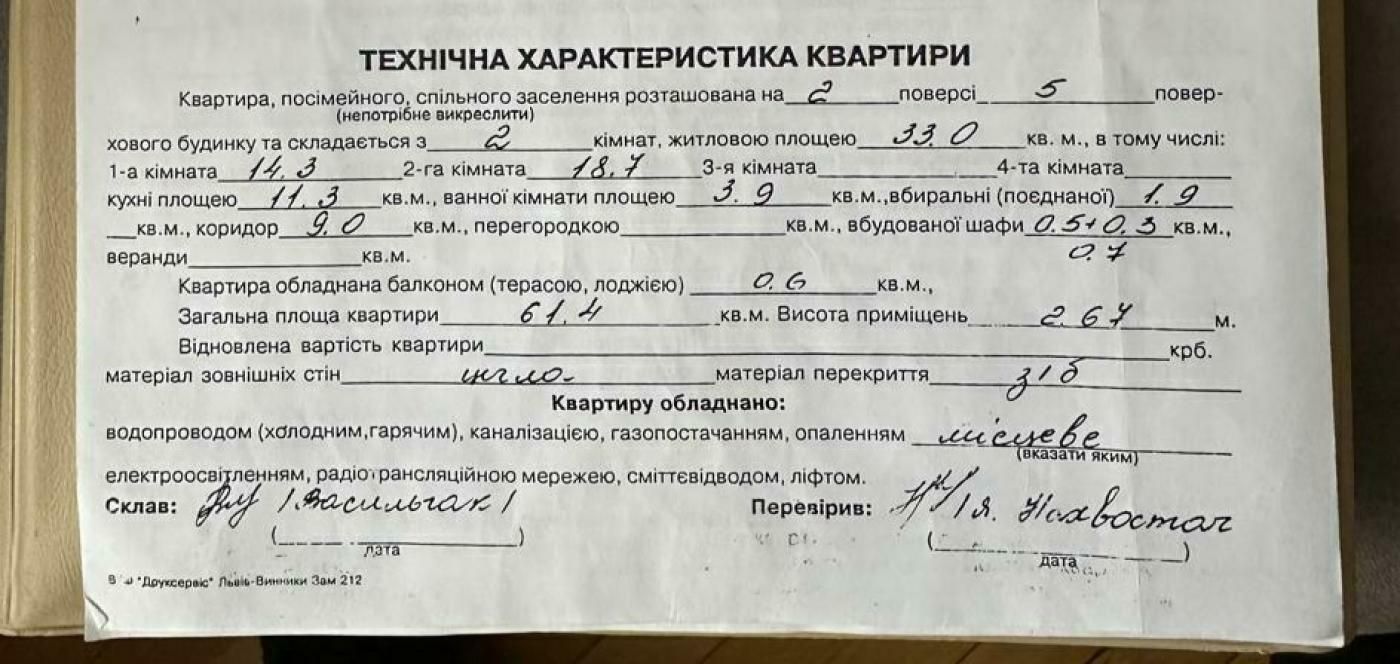 ТЕХНІЧНА ХАРАКТЕРИСТИКА КВАРТИРИ
Квартира, посімейного, спільного заселення розташована на 2 поверсі 5 повер-
(непотрібне викреслити)
хового будинку та складається з 2 кімнат, житловою площею 33.0 кв. м., в тому числі:
1-а кімната 14.3 2-га кімната 18.7 3-я кімната 4-та кімната
кухні площею 11.3 кв.м., ванної кімнати площею 3.9 кв.м.,вбиральні (поєднаної) 1.9
кв.м., коридор 9.0 кв.м., перегородкою кв.м., вбудованої шафи 0.5+0.3 кв.м.,
0.7
веранди кв.м.
Квартира обладнана балконом (терасою, лоджією) 0.6 кв.м.,
Загальна площа квартири 61.4 кв.м. Висота приміщень 2.67 м.
Відновлена вартість квартири крб.
матеріал зовнішніх стін цегла матеріал перекриття з/б
Квартиру обладнано:
водопроводом (холодним,гарячим), каналізацією, газопостачанням, опаленням місцеве
(вказати яким)
електроосвітленням, радіотрансляційною мережею, сміттєвідводом, ліфтом.
Склав: Перевірив:
(дата) (дата)
"Друксервіс" Львів-Винники Зам 212